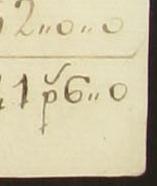 2„0„0
1 p̆ 6„0